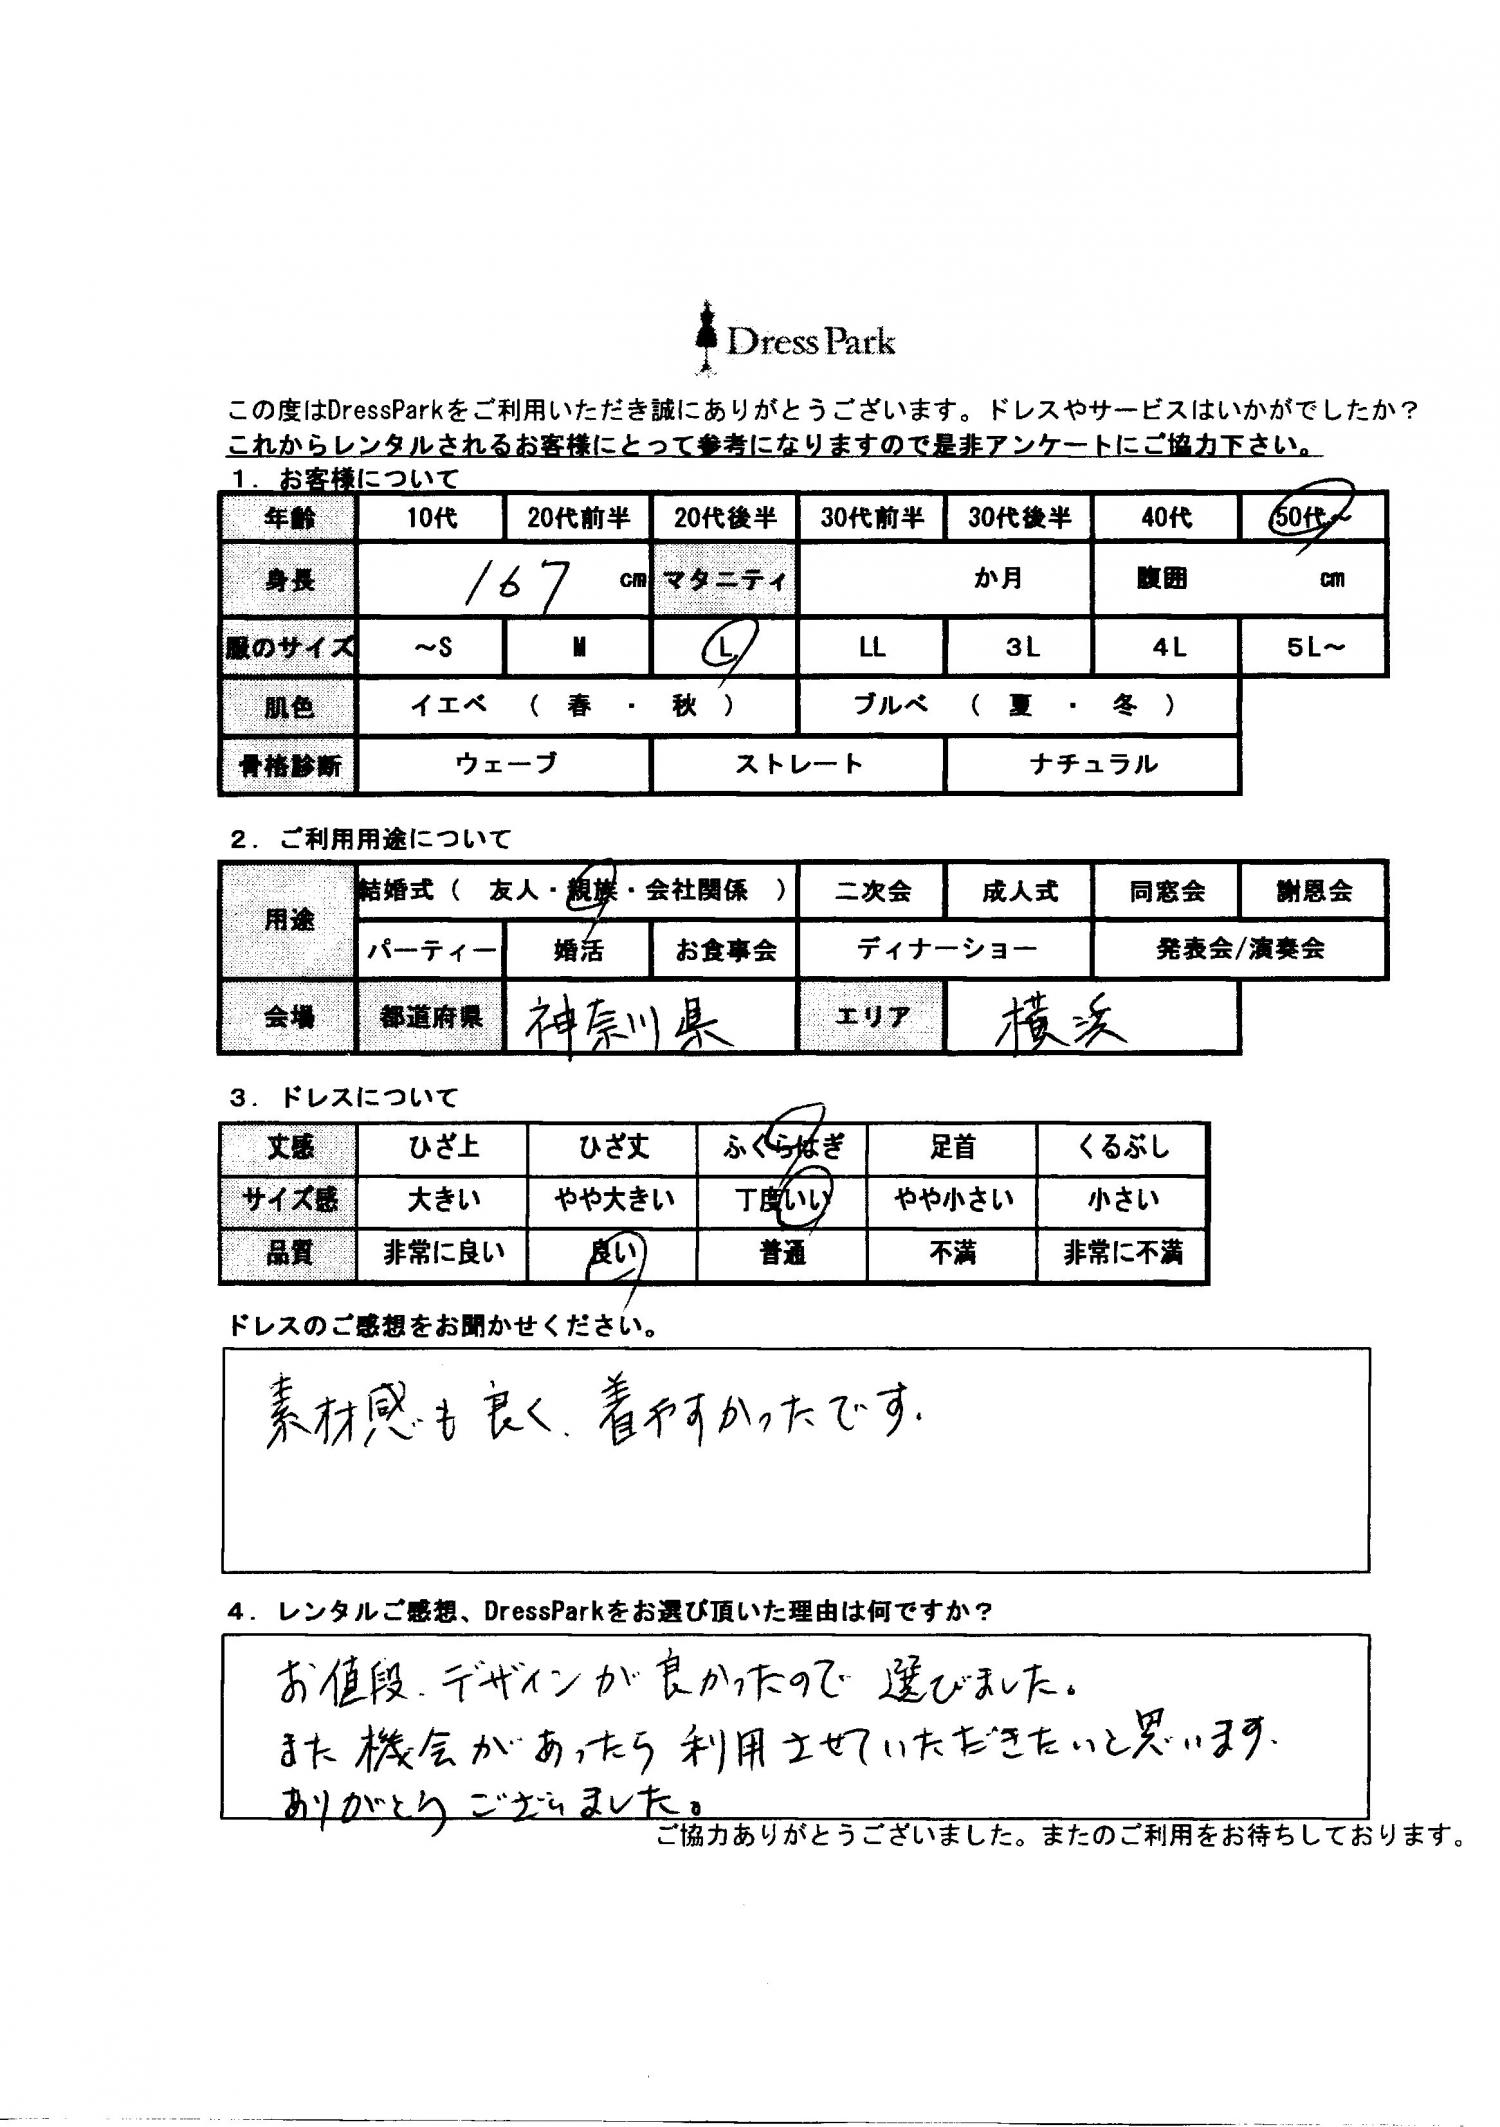 Dress Park
この度はDressParkをご利用いただき誠にありがとうございます。ドレスやサービスはいかがでしたか？
これからレンタルされるお客様にとって参考になりますので是非アンケートにご協力下さい。
１．お客様について
年齢 10代 20代前半 20代後半 30代前半 30代後半 40代 50代～
身長 167 cm マタニティ か月 腹囲 cm
服のサイズ ～S M L LL 3L 4L 5L～
肌色 イエベ （ 春 ・ 秋 ） ブルベ （ 夏 ・ 冬 ）
骨格診断 ウェーブ ストレート ナチュラル
２．ご利用用途について
用途 結婚式（ 友人・親族・会社関係 ） 二次会 成人式 同窓会 謝恩会
パーティー 婚活 お食事会 ディナーショー 発表会/演奏会
会場 都道府県 神奈川県 エリア 横浜
３．ドレスについて
丈感 ひざ上 ひざ丈 ふくらはぎ 足首 くるぶし
サイズ感 大きい やや大きい 丁度いい やや小さい 小さい
品質 非常に良い 良い 普通 不満 非常に不満
ドレスのご感想をお聞かせください。
素材感も良く、着やすかったです。
４．レンタルご感想、DressParkをお選び頂いた理由は何ですか？
お値段、デザインが良かったので選びました。
また機会があったら利用させていただきたいと思います。
ありがとうございました。
ご協力ありがとうございました。またのご利用をお待ちしております。